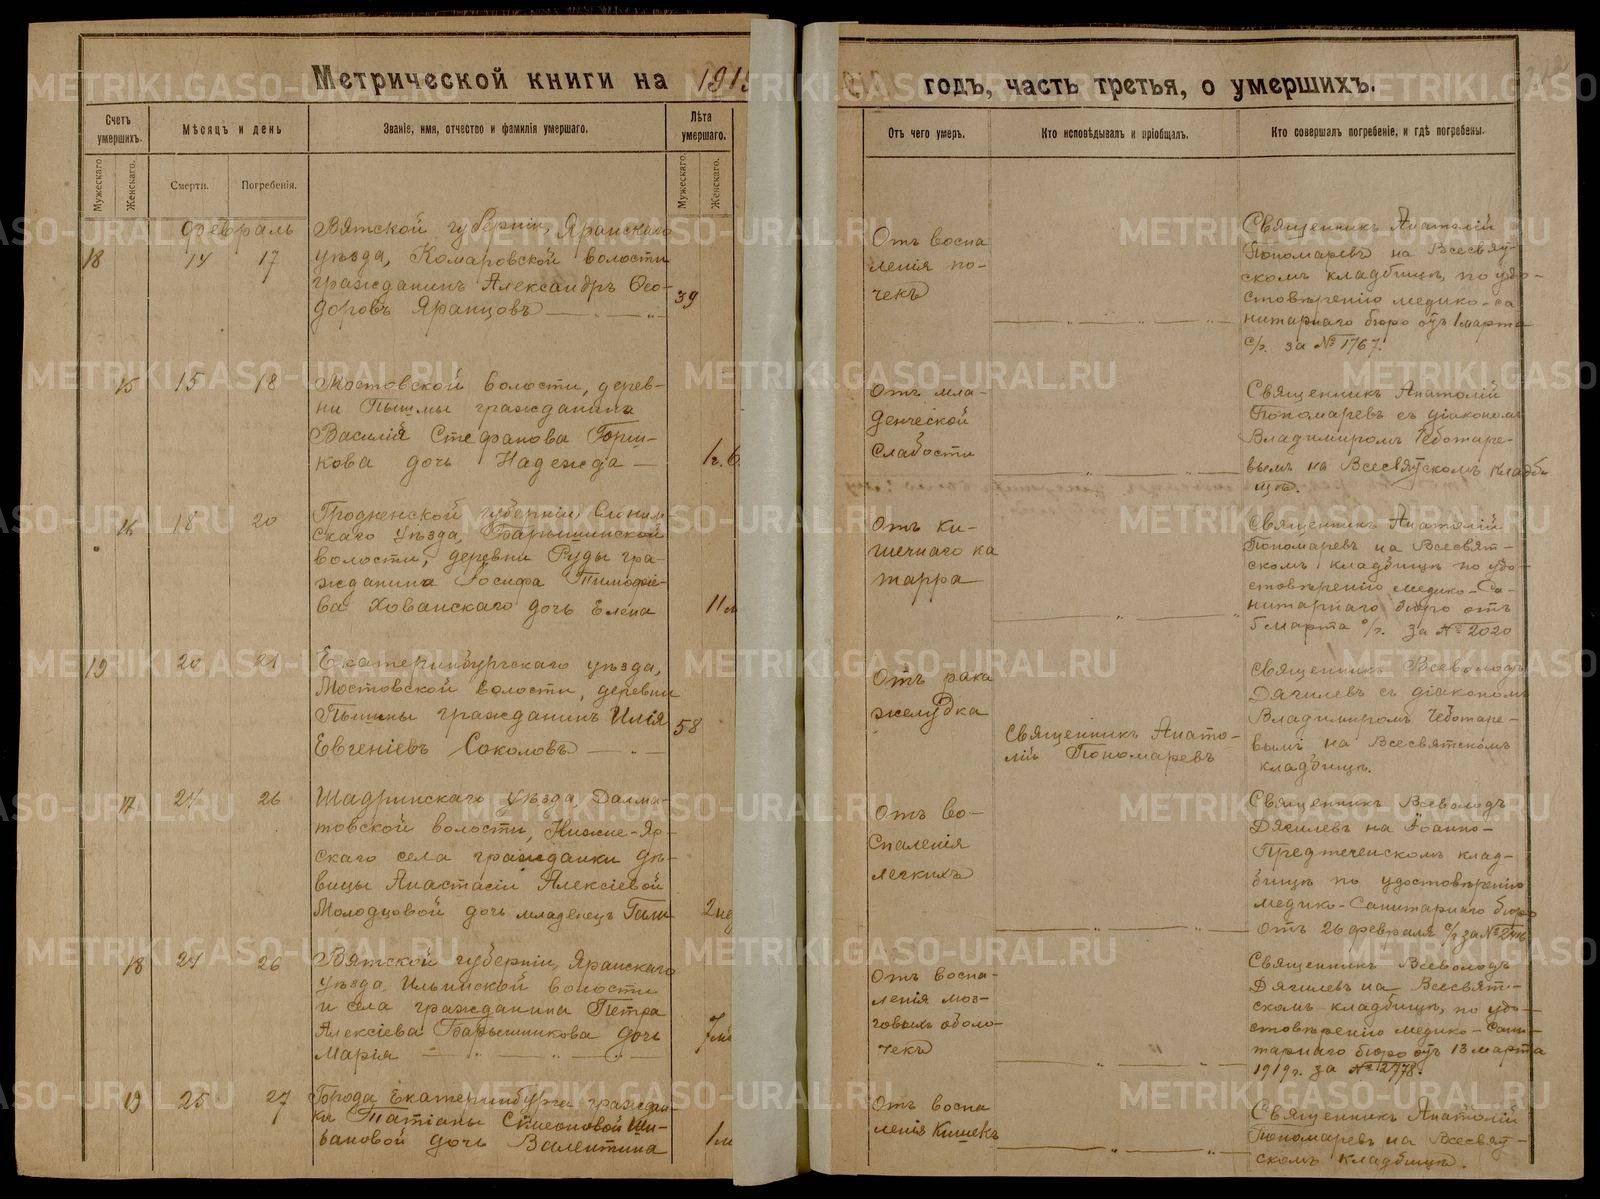 Метрической книги на 1919
годъ, часть третья, о умершихъ.
Счетъ умершихъ.
Мѣсяцъ и день
Званіе, имя, отчество и фамилія умершаго.
Лѣта умершаго.
Отъ чего умеръ.
Кто исповѣдывалъ и пріобщалъ.
Кто совершалъ погребеніе, и гдѣ погребены.
Мужескаго
Женскаго.
Смерти.
Погребенія.
Мужескаго.
Женскаго.
Февраль
18
14
17
Вятской губерніи, Яранскаго
уѣзда, Комаровской волости
гражданинъ Александръ Ѳео-
доровъ Яранцовъ
39
Отъ воспа
ленія по-
чекъ
Священникъ Анатолій
Пономаревъ на Всесвят-
скомъ кладбищѣ, по удо-
стовѣренію медико-са
нитарнаго бюро отъ 1 марта
с/г. за № 1767.
15
15
18
Мостовской волости, дерев-
ни Пышмы гражданина
Василія Стефанова Горш-
кова дочь Надежда
1г. 6
Отъ мла-
денческой
слабости
Священникъ Анатолій
Пономаревъ съ діакономъ
Владимиромъ Чеботаре-
вымъ на Всесвятскомъ кладби
щѣ.
16
18
20
Гродненской губерніи, Слоним
скаго уѣзда,
волости, деревни Руды гра-
жданина Іосифа Тимоѳѣе-
ва Хованскаго дочь Елена
11 м
Отъ ки-
шечнаго ка
тарра
Священникъ Анатолій
Пономаревъ на Всесвят-
скомъ кладбищѣ по удо-
стовѣренію медико-са-
нитарнаго бюро отъ
5 марта с/г. за № 2020
19
20
21
Екатеринбургскаго уѣзда,
Мостовской волости, деревни
Пышмы гражданинъ Илія
Евгеніевъ Соколовъ
58
Отъ рака
желудка
Священникъ Анато-
лій Пономаревъ
Священникъ Всеволодъ
Дягилевъ съ діакономъ
Владимиромъ Чеботаре-
вымъ на Всесвятскомъ
кладбищѣ.
17
24
26
Шадринскаго уѣзда, Далма-
товской волости, Нижне-Яр-
скаго села гражданки дѣ-
вицы Анастасіи Алексіевой
Молодцовой дочь младенецъ
2 нед
Отъ во-
спаленія
легкихъ
Священникъ Всеволодъ
Дягилевъ на Іоанно-
Предтеченскомъ клад-
бищѣ по удостовѣренію
медико-санитарнаго бюро
отъ 26 февраля с/г за №
18
24
26
Вятской губерніи, Яранскаго
уѣзда, Ильинской волости
и села гражданина Петра
Алексіева Барышникова дочь
Марія
7 м
Отъ воспа-
ленія моз-
говыхъ оболо-
чекъ
Священникъ Всеволодъ
Дягилевъ на Всесвят-
скомъ кладбищѣ, по удо-
стовѣренію медико-сани-
тарнаго бюро отъ 13 марта
1919 г. за № 2778.
19
25
27
Города Екатеринбурга граждан-
ки Татіаны Симеоновой
дочь Валентина
1 м
Отъ воспа
ленія кишекъ
Священникъ Анатолій
Пономаревъ на Всесвят-
скомъ кладбищѣ.
METRIKI.GASO-URAL.RU